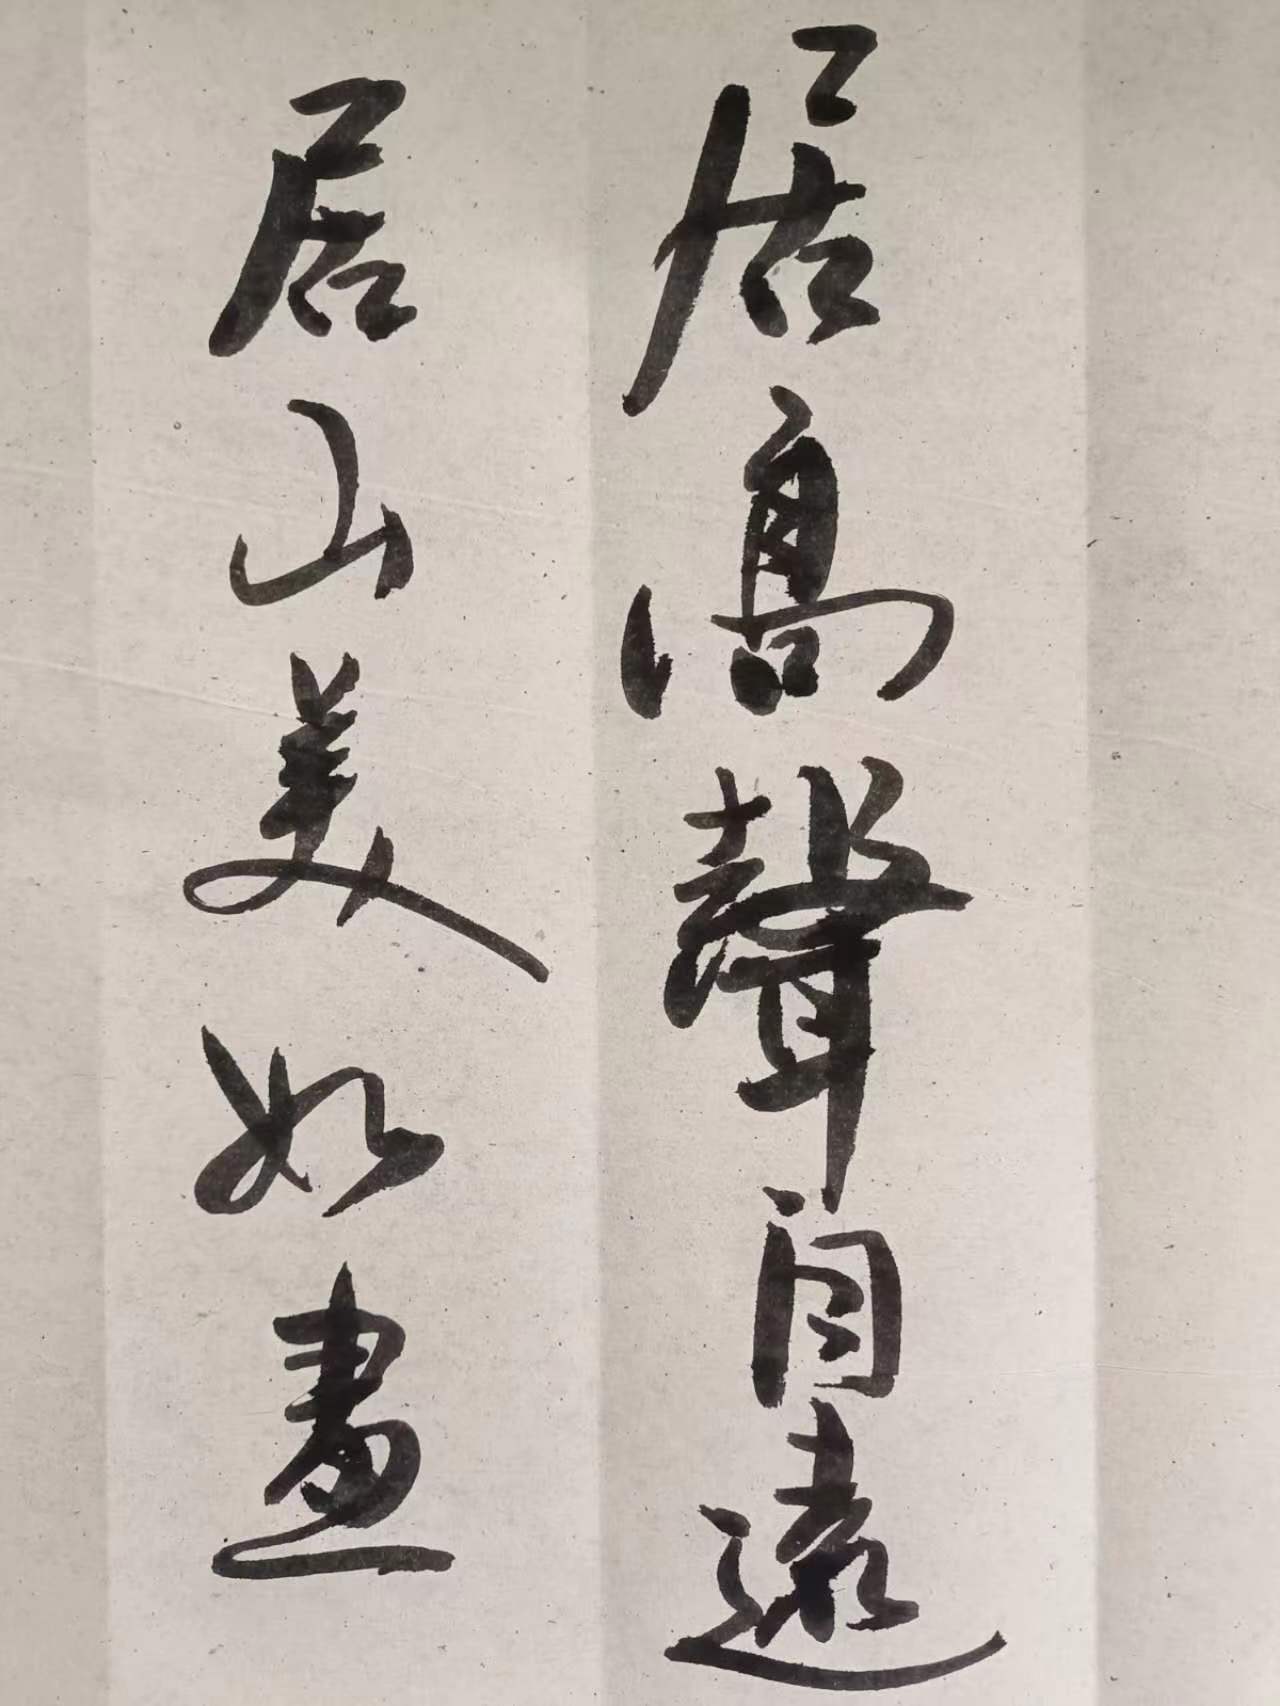 居高聲自遠
居山美如畫